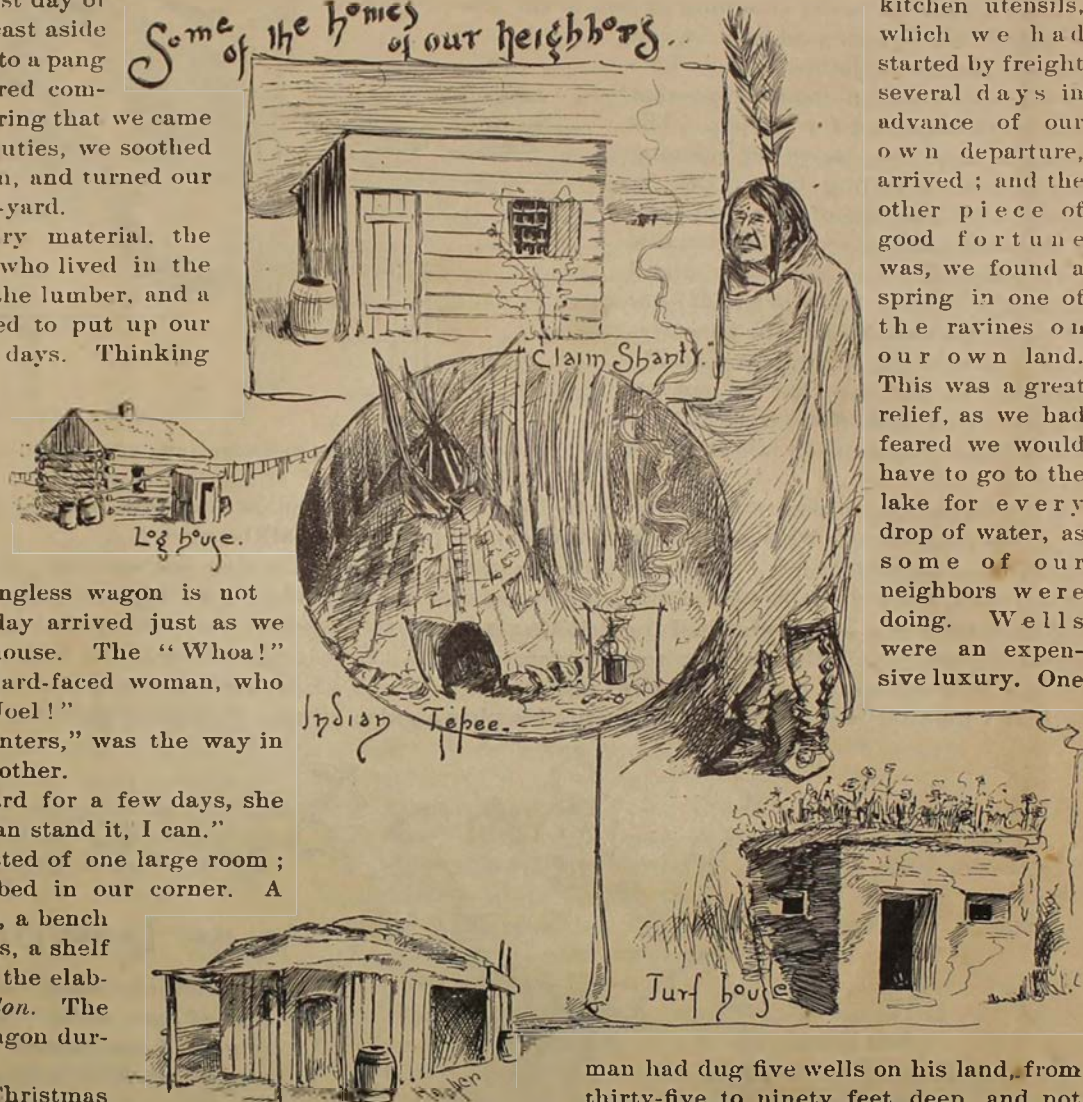 Some of the homes
of our neighbors.
ast aside
to a pang
red com-
ring that we came
uties, we soothed
n, and turned our
-yard.
ry material. the
who lived in the
the lumber, and a
ed to put up our
days. Thinking
Claim Shanty.
Log house.
ngless wagon is not
day arrived just as we
house. The “Whoa!”
ard-faced woman, who
Joel!”
nters,” was the way in
other.
ard for a few days, she
an stand it, I can.”
ted of one large room ;
bed in our corner. A
, a bench
s, a shelf
the elab-
on. The
agon dur-
Christmas
Indian Tepee.
Turf house
kitchen utensils,
which we had
started by freight
several days in
advance of our
own departure,
arrived ; and the
other piece of
good fortune
was, we found a
spring in one of
the ravines on
our own land.
This was a great
relief, as we had
feared we would
have to go to the
lake for every
drop of water, as
some of our
neighbors were
doing. Wells
were an expen-
sive luxury. One
man had dug five wells on his land, from
thirty-five to ninety feet deep, and not